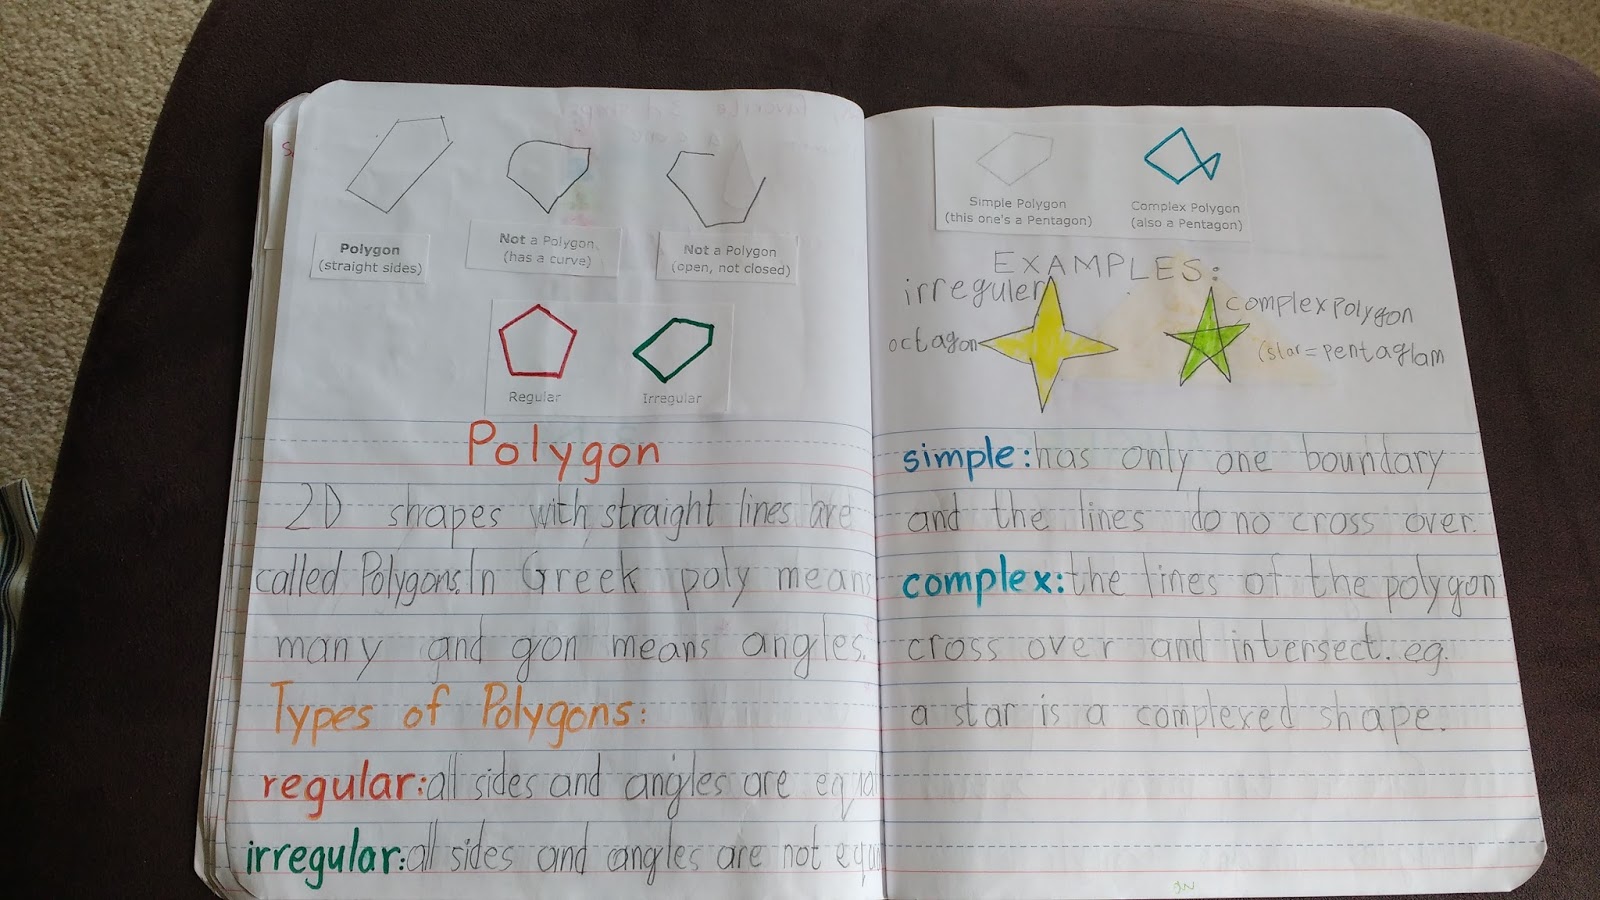 Polygon
(straight sides)
Not a Polygon
(has a curve)
Not a Polygon
(open, not closed)
Regular
Irregular
Polygon
2D shapes with straight lines are
called Polygons. In Greek poly means
many and gon means angles.
Types of Polygons:
regular: all sides and angles are equa
irregular: all sides and angles are not equ
Simple Polygon
(this one's a Pentagon)
Complex Polygon
(also a Pentagon)
EXAMPLES:
irreguler
octagon
complex polygon
(star = pentaglam
simple: has only one boundary
and the lines do no cross over.
complex: the lines of the polygon
cross over and intersect. eg.
a star is a complexed shape.